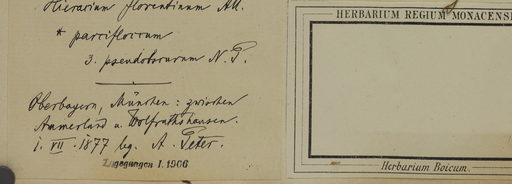 Hieracium florentinum All.
* parciflorum
3. pseudobounum N. P.
Oberbayern, München: zwischen
Ammerland u. Wolfrathshausen.
1. VII. 1877 lg. A. Peter.
Zugegangen I. 1906
HERBARIUM REGIUM MONACENSE
Herbarium Boicum.